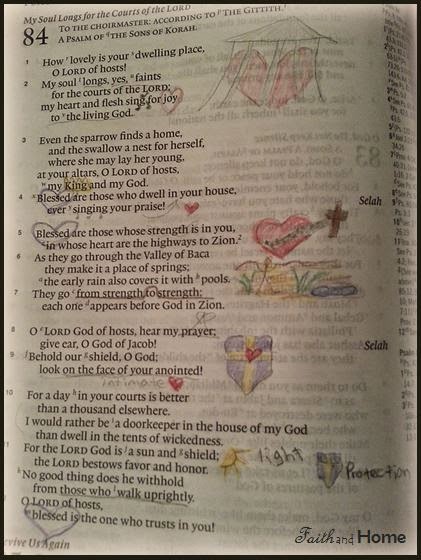 My Soul Longs for the Courts of the LORD
84 TO THE CHOIRMASTER: ACCORDING TO THE GITTITH.
A PSALM OF THE SONS OF KORAH.
1 How lovely is your dwelling place,
O LORD of hosts!
2 My soul longs, yes, faints
for the courts of the LORD;
my heart and flesh sing for joy
to the living God.
3 Even the sparrow finds a home,
and the swallow a nest for herself,
where she may lay her young,
at your altars, O LORD of hosts,
my King and my God.
4 Blessed are those who dwell in your house,
ever singing your praise! Selah
5 Blessed are those whose strength is in you,
in whose heart are the highways to Zion.2
6 As they go through the Valley of Baca
they make it a place of springs;
the early rain also covers it with pools.
7 They go from strength to strength;
each one appears before God in Zion.
8 O LORD God of hosts, hear my prayer;
give ear, O God of Jacob! Selah
9 Behold our shield, O God;
look on the face of your anointed!
intimate
10 For a day in your courts is better
than a thousand elsewhere.
I would rather be a doorkeeper in the house of my God
than dwell in the tents of wickedness.
11 For the LORD God is a sun and shield; light
the LORD bestows favor and honor. Protection
No good thing does he withhold
from those who walk uprightly.
O LORD of hosts,
blessed is the one who trusts in you!
Us Again
Faith and Home